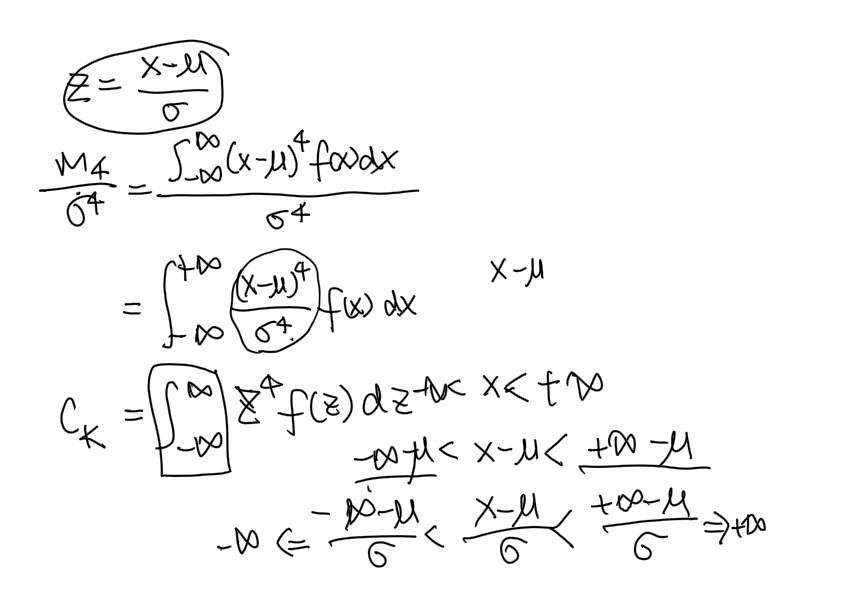 z = (x-μ)/σ
M₄/σ⁴ = ∫_{-∞}^{∞} (x-μ)⁴ f(x)dx / σ⁴
= ∫_{-∞}^{+∞} (x-μ)⁴/σ⁴ f(x) dx x-μ
C_K = ∫_{-∞}^{∞} z⁴ f(z) dz -∞< x< +∞
-∞-μ < x-μ < +∞-μ
-∞ ⇐ (-∞-μ)/σ < (x-μ)/σ < (+∞-μ)/σ ⇒ +∞